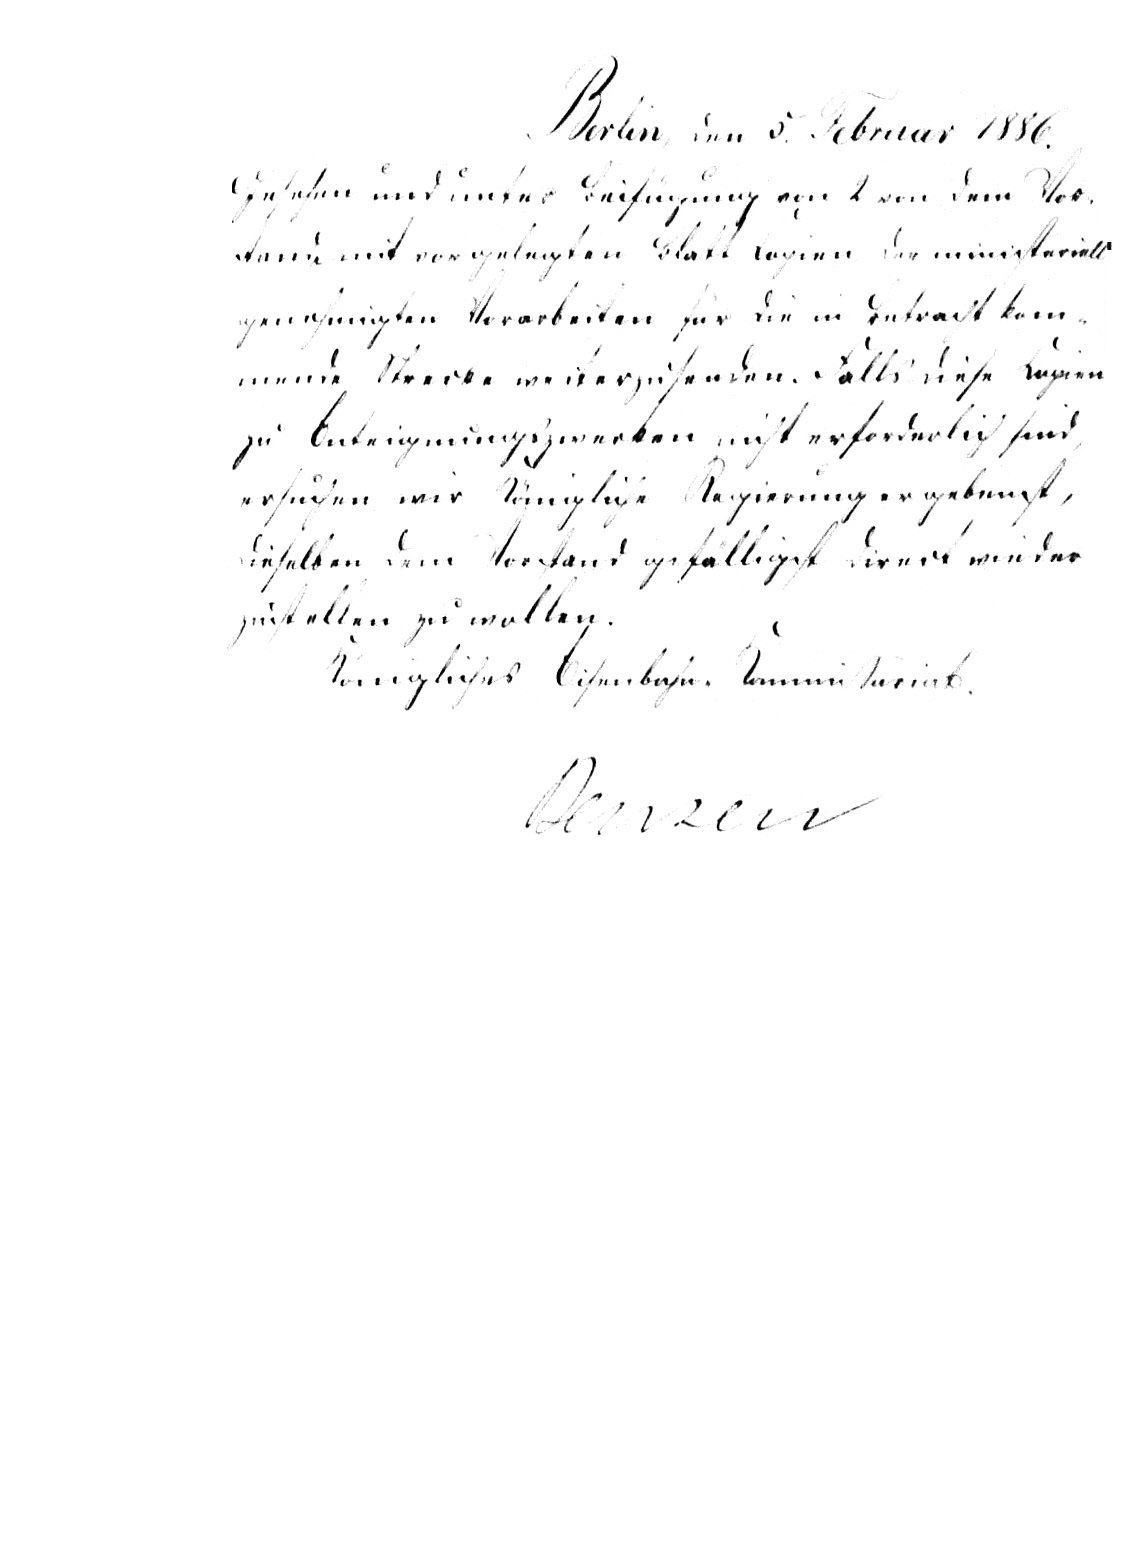 Berlin, den 5. Februar 1886.
Gesehen und unter Beifügung von 2 von dem Vor-
stande mit vorgelegten Blatt Kopien der ministeriell
genehmigten Vorarbeiten für die in Betracht kom-
mende Strecke weiterzusenden. Falls diese Kopien
zu Enteignungszwecken nicht erforderlich sind,
ersuchen wir Königliche Regierung ergebenst,
dieselben dem Vorstand gefälligst direct wieder
zustellen zu wollen.
Königliches Eisenbahn-Kommissariat.